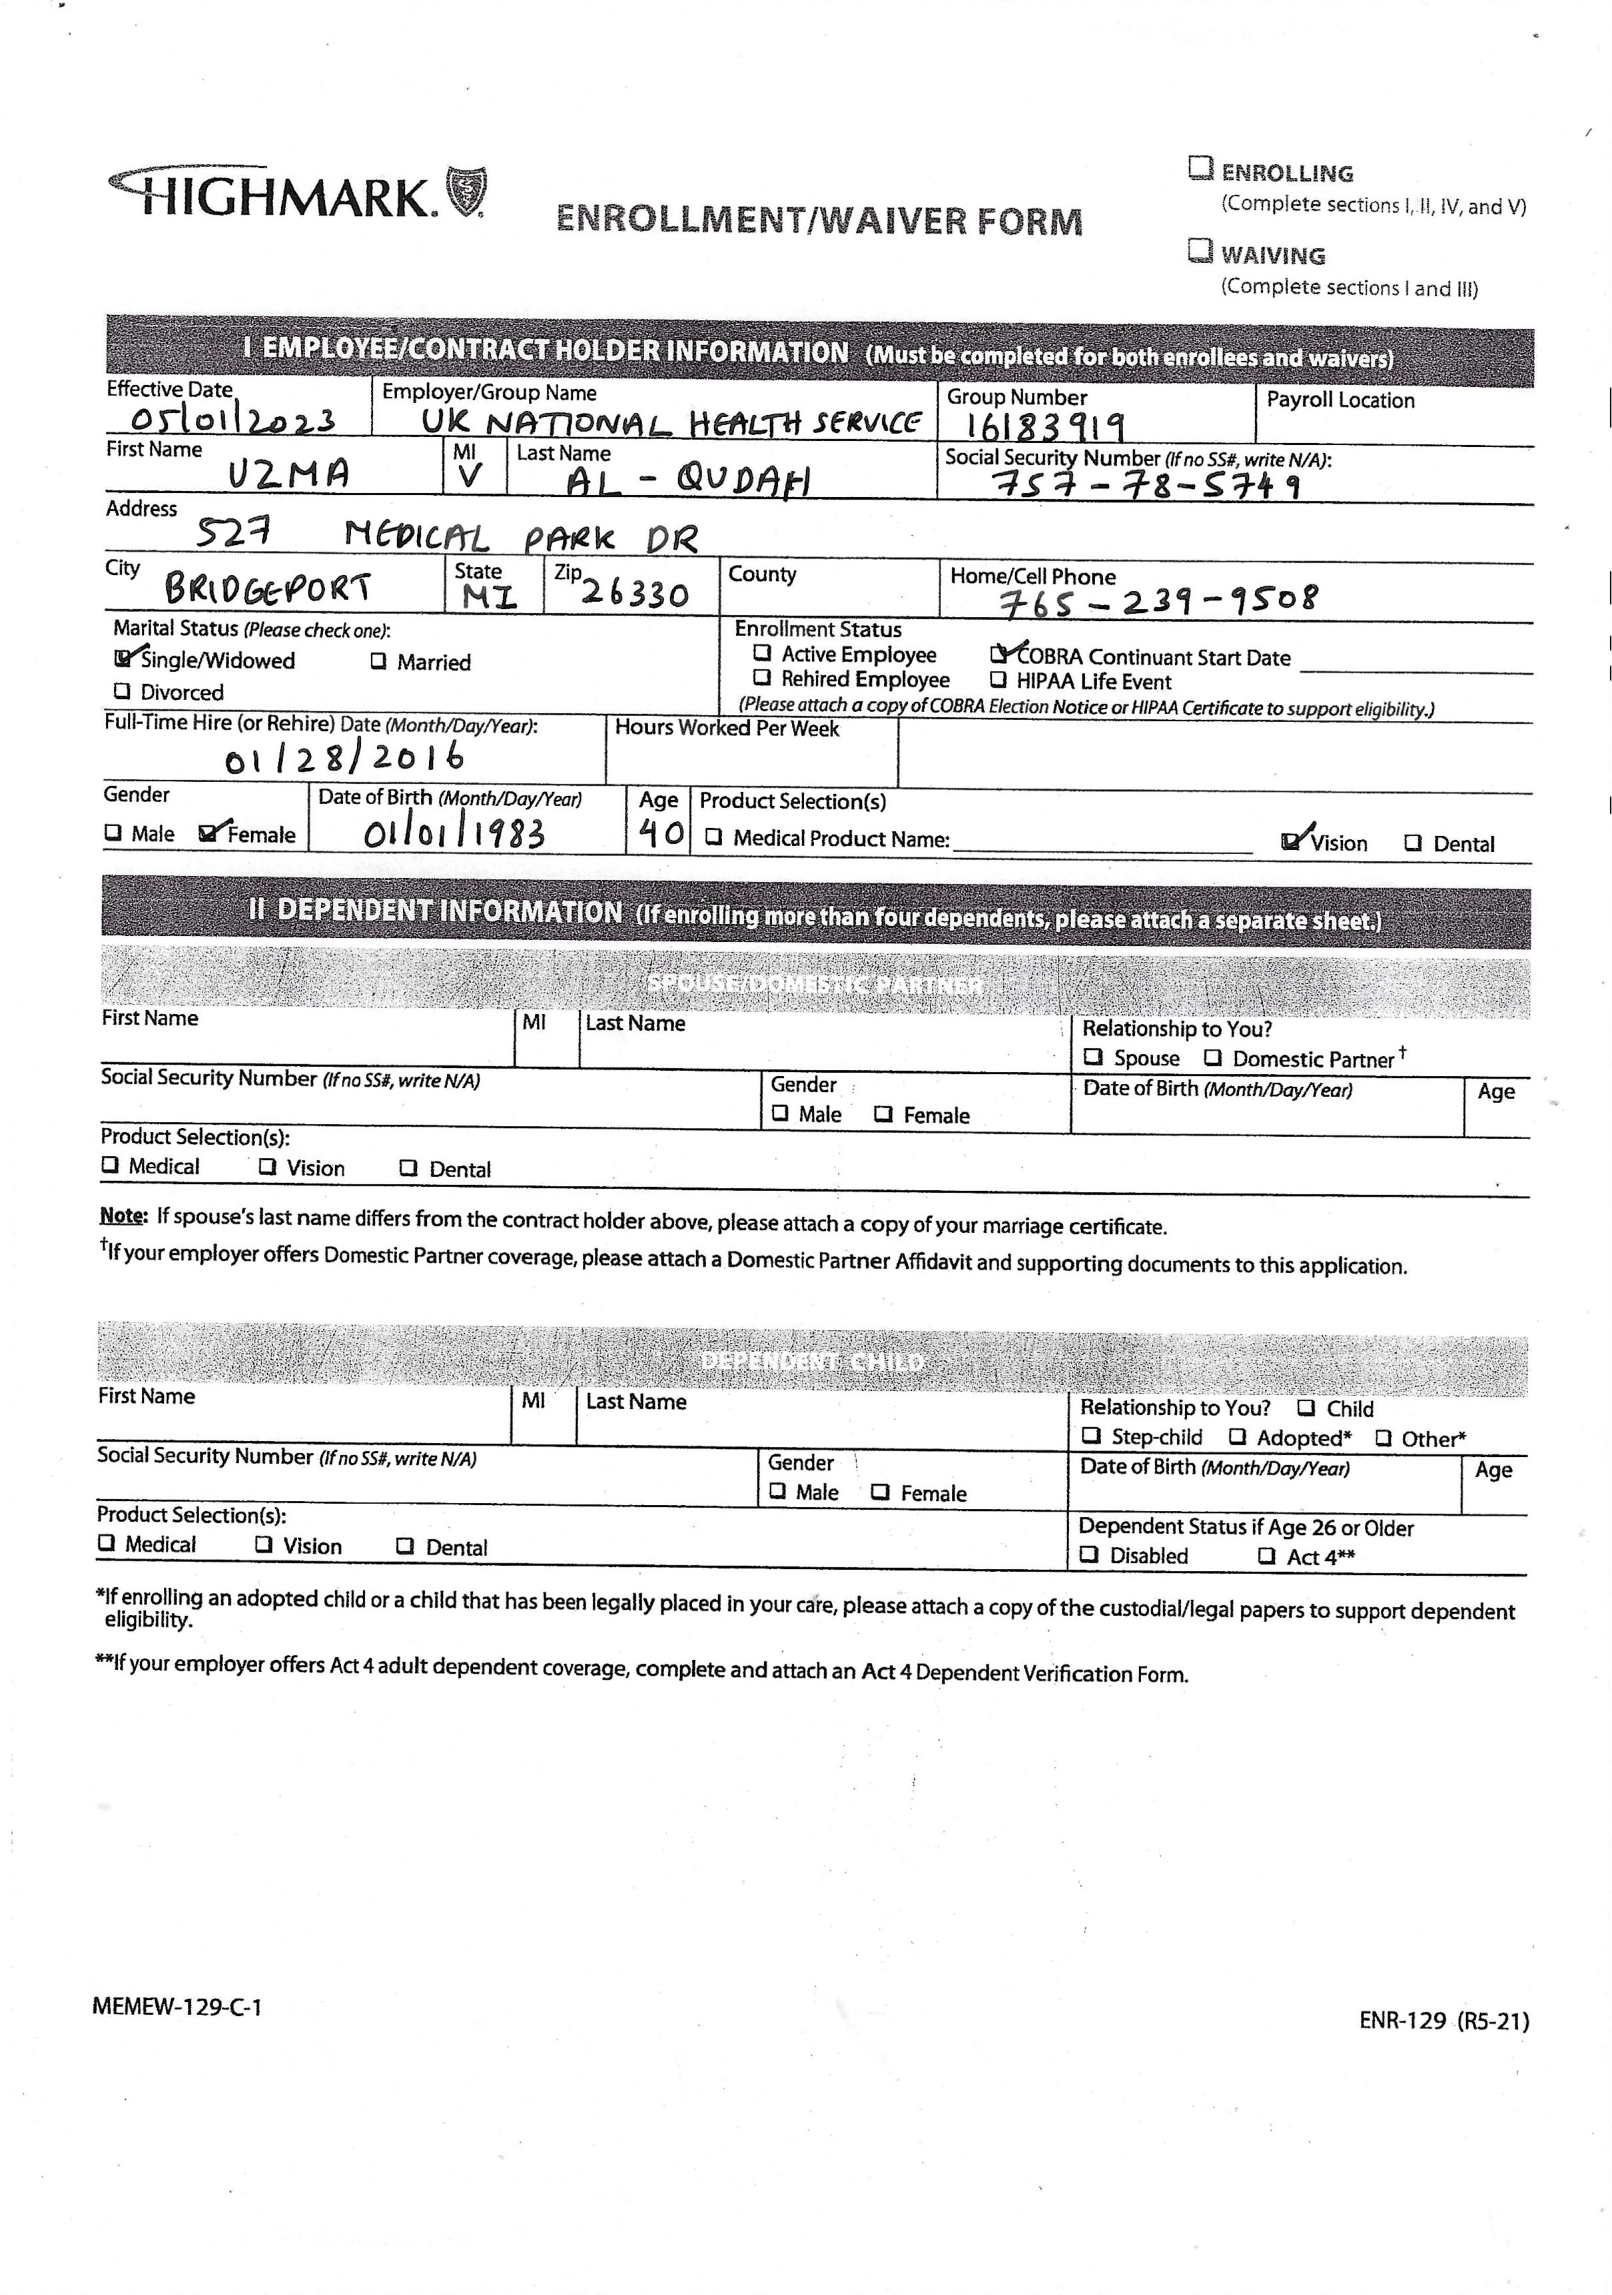 HIGHMARK.
ENROLLMENT/WAIVER FORM
☐ ENROLLING
(Complete sections I, II, IV, and V)
☐ WAIVING
(Complete sections I and III)
I EMPLOYEE/CONTRACT HOLDER INFORMATION (Must be completed for both enrollees and waivers)
Effective Date Employer/Group Name Group Number Payroll Location
05/01/2023 UK NATIONAL HEALTH SERVICE 16183919
First Name MI Last Name Social Security Number (If no SS#, write N/A):
UZMA V AL - QUDAH 757-78-5749
Address
527 MEDICAL PARK DR
City State Zip County Home/Cell Phone
BRIDGEPORT MI 26330 765-239-9508
Marital Status (Please check one): Enrollment Status
☑ Single/Widowed ☐ Married ☐ Active Employee ☑ COBRA Continuant Start Date
☐ Divorced ☐ Rehired Employee ☐ HIPAA Life Event
(Please attach a copy of COBRA Election Notice or HIPAA Certificate to support eligibility.)
Full-Time Hire (or Rehire) Date (Month/Day/Year): Hours Worked Per Week
01/28/2016
Gender Date of Birth (Month/Day/Year) Age Product Selection(s)
☐ Male ☑ Female 01/01/1983 40 ☐ Medical Product Name: ☑ Vision ☐ Dental
II DEPENDENT INFORMATION (If enrolling more than four dependents, please attach a separate sheet.)
SPOUSE/DOMESTIC PARTNER
First Name MI Last Name Relationship to You?
☐ Spouse ☐ Domestic Partner†
Social Security Number (If no SS#, write N/A) Gender Date of Birth (Month/Day/Year) Age
☐ Male ☐ Female
Product Selection(s):
☐ Medical ☐ Vision ☐ Dental
Note: If spouse's last name differs from the contract holder above, please attach a copy of your marriage certificate.
†If your employer offers Domestic Partner coverage, please attach a Domestic Partner Affidavit and supporting documents to this application.
DEPENDENT CHILD
First Name MI Last Name Relationship to You? ☐ Child
☐ Step-child ☐ Adopted* ☐ Other*
Social Security Number (If no SS#, write N/A) Gender Date of Birth (Month/Day/Year) Age
☐ Male ☐ Female
Product Selection(s): Dependent Status if Age 26 or Older
☐ Medical ☐ Vision ☐ Dental ☐ Disabled ☐ Act 4**
*If enrolling an adopted child or a child that has been legally placed in your care, please attach a copy of the custodial/legal papers to support dependent
eligibility.
**If your employer offers Act 4 adult dependent coverage, complete and attach an Act 4 Dependent Verification Form.
MEMEW-129-C-1 ENR-129 (R5-21)